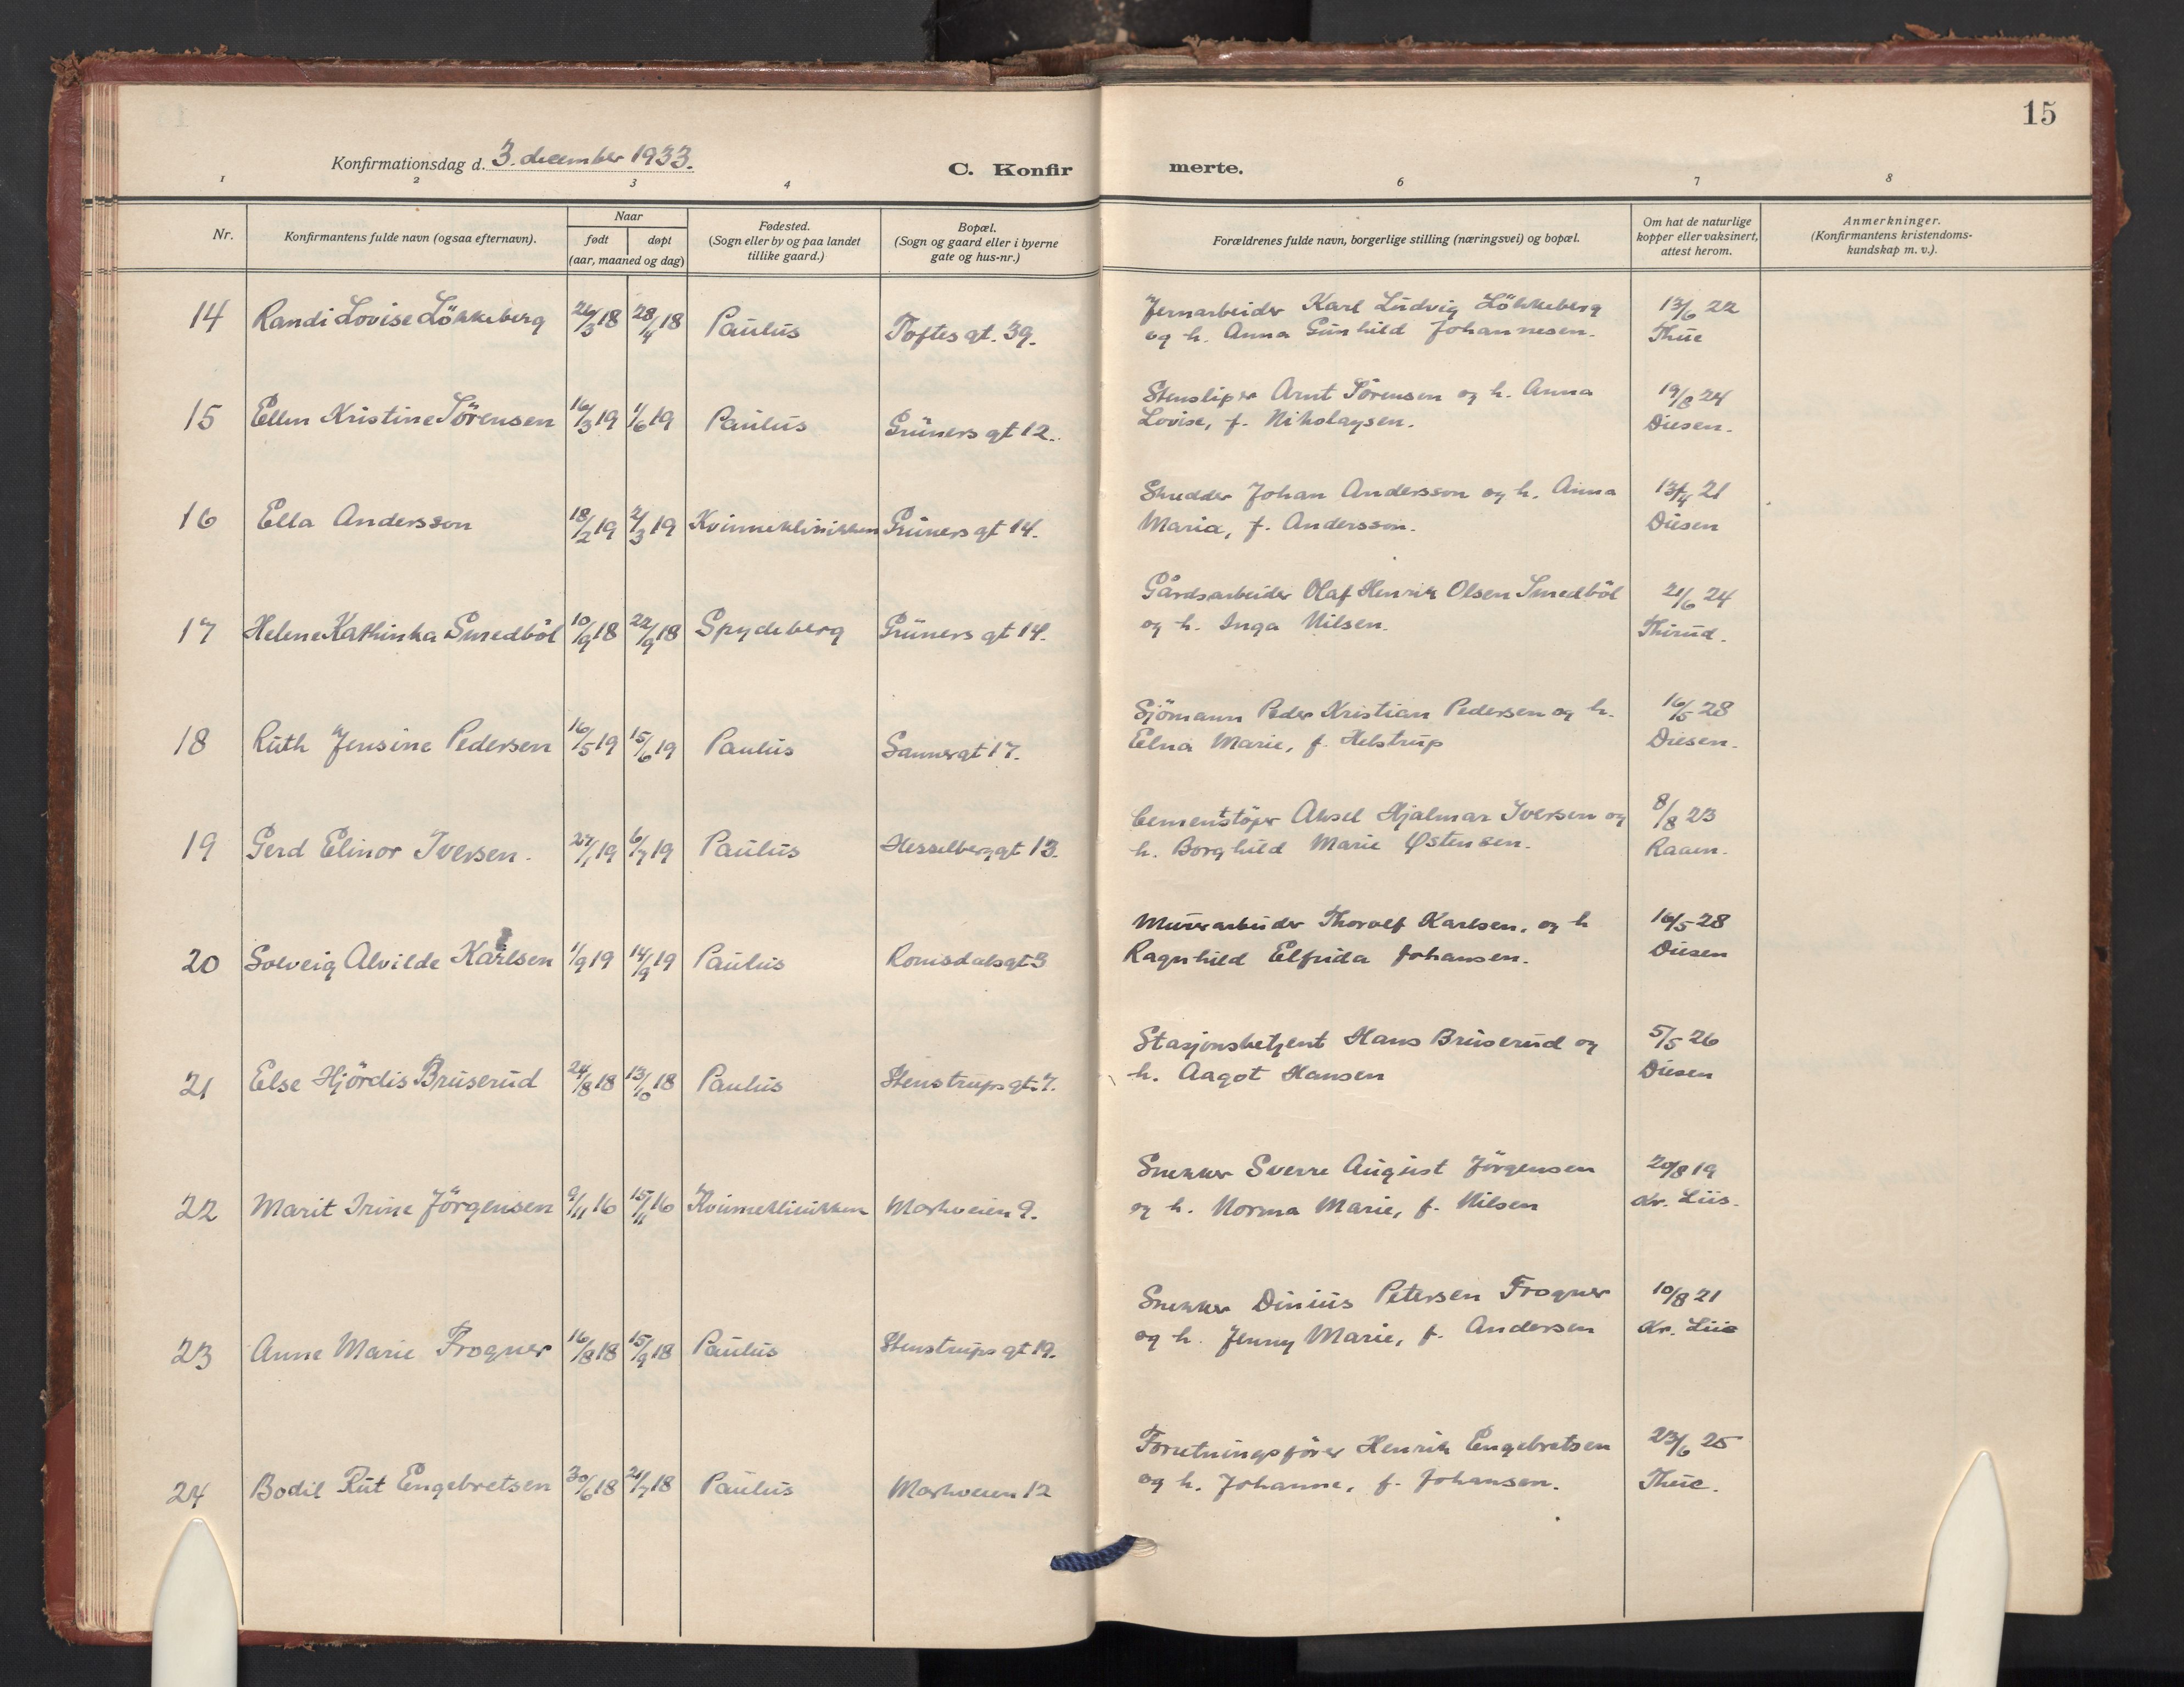 15
Konfirmationsdag d. 3. december 1933.
C. Konfir merte.
1 2 3 4 6 7 8
Nr.
Konfirmantens fulde navn (ogsaa efternavn).
Naar
født døpt
(aar, maaned og dag)
Fødested.
(Sogn eller by og paa landet
tillike gaard.)
Bopæl.
(Sogn og gaard eller i byerne
gate og hus-nr.)
Forældrenes fulde navn, borgerlige stilling (næringsvei) og bopæl.
Om hat de naturlige
kopper eller vaksinert,
attest herom.
Anmerkninger.
(Konfirmantens kristendoms-
kundskap m. v.).
14 Randi Lovise Lökkeberg 26/3 18 28/4 18 Paulus Toftes gt. 39.
Jernarbeider Karl Ludvig Lökkeberg 13/6 22
og h. Anna Gunhild Johannesen. Thue
15 Ellen Kristine Sörensen 16/3 19 1/6 19 Paulus Grüners gt 12.
Stensliper Arnt Sörensen og h. Anna 19/8 24
Lovise, f. Nikolaysen. Diesen.
16 Ella Andersson 18/2 19 2/3 19 Kvinneklinikken Grüners gt 14.
Skredder Johan Andersson og h. Anna 13/4 21
Maria, f. Andersson. Diesen
17 Helene Kathinka Smedböl 10/9 18 22/9 18 Spydeberg Grüners gt 14.
Gårdsarbeider Olaf Henrik Olsen Smedböl 21/6 24
og h. Inga Nilsen. Thirud.
18 Ruth Jensine Pedersen 16/5 19 15/6 19 Paulus Sannergt 17.
Sjömann Peder Kristian Pedersen og h. 16/5 28
Elna Marie, f. Helstrup Diesen.
19 Gerd Elinor Iversen. 27/1 19 6/7 19 Paulus Hesselberggt 13.
Cementstöper Aksel Hjalmar Iversen og 8/8 23
h. Borghild Marie Østensen. Raaen.
20 Solveig Alvilde Karlsen 1/9 19 14/9 19 Paulus Romsdalsgt 3
Murerarbeider Thorolf Karlsen, og h 16/5 28
Ragnhild Elfrida Johansen. Diesen
21 Else Hjördis Bruserud 24/8 18 13/10 18 Paulus Stenstrups gt. 7.
Stasjonsbetjent Hans Bruserud og 5/5 26
h. Aagot Hansen Diesen
22 Marit Irine Jörgensen 9/11 16 15/11 16 Kvinneklinikken Markveien 9.
Snekker Sverre August Jörgensen 20/8 19
og h. Norma Marie, f. Nilsen Kr. Liis.
23 Anne Marie Frogner 16/8 18 15/9 18 Paulus Stenstrups gt 19.
Snekker Dinius Petersen Frogner 10/8 21
og h. Jenny Marie, f. Andersen Kr. Liis
24 Bodil Rut Engebretsen 30/6 18 21/7 18 Paulus Markveien 12
Forretningsförer Henrik Engebretsen 23/6 25
og h. Johanne, f. Johansen. Thue.